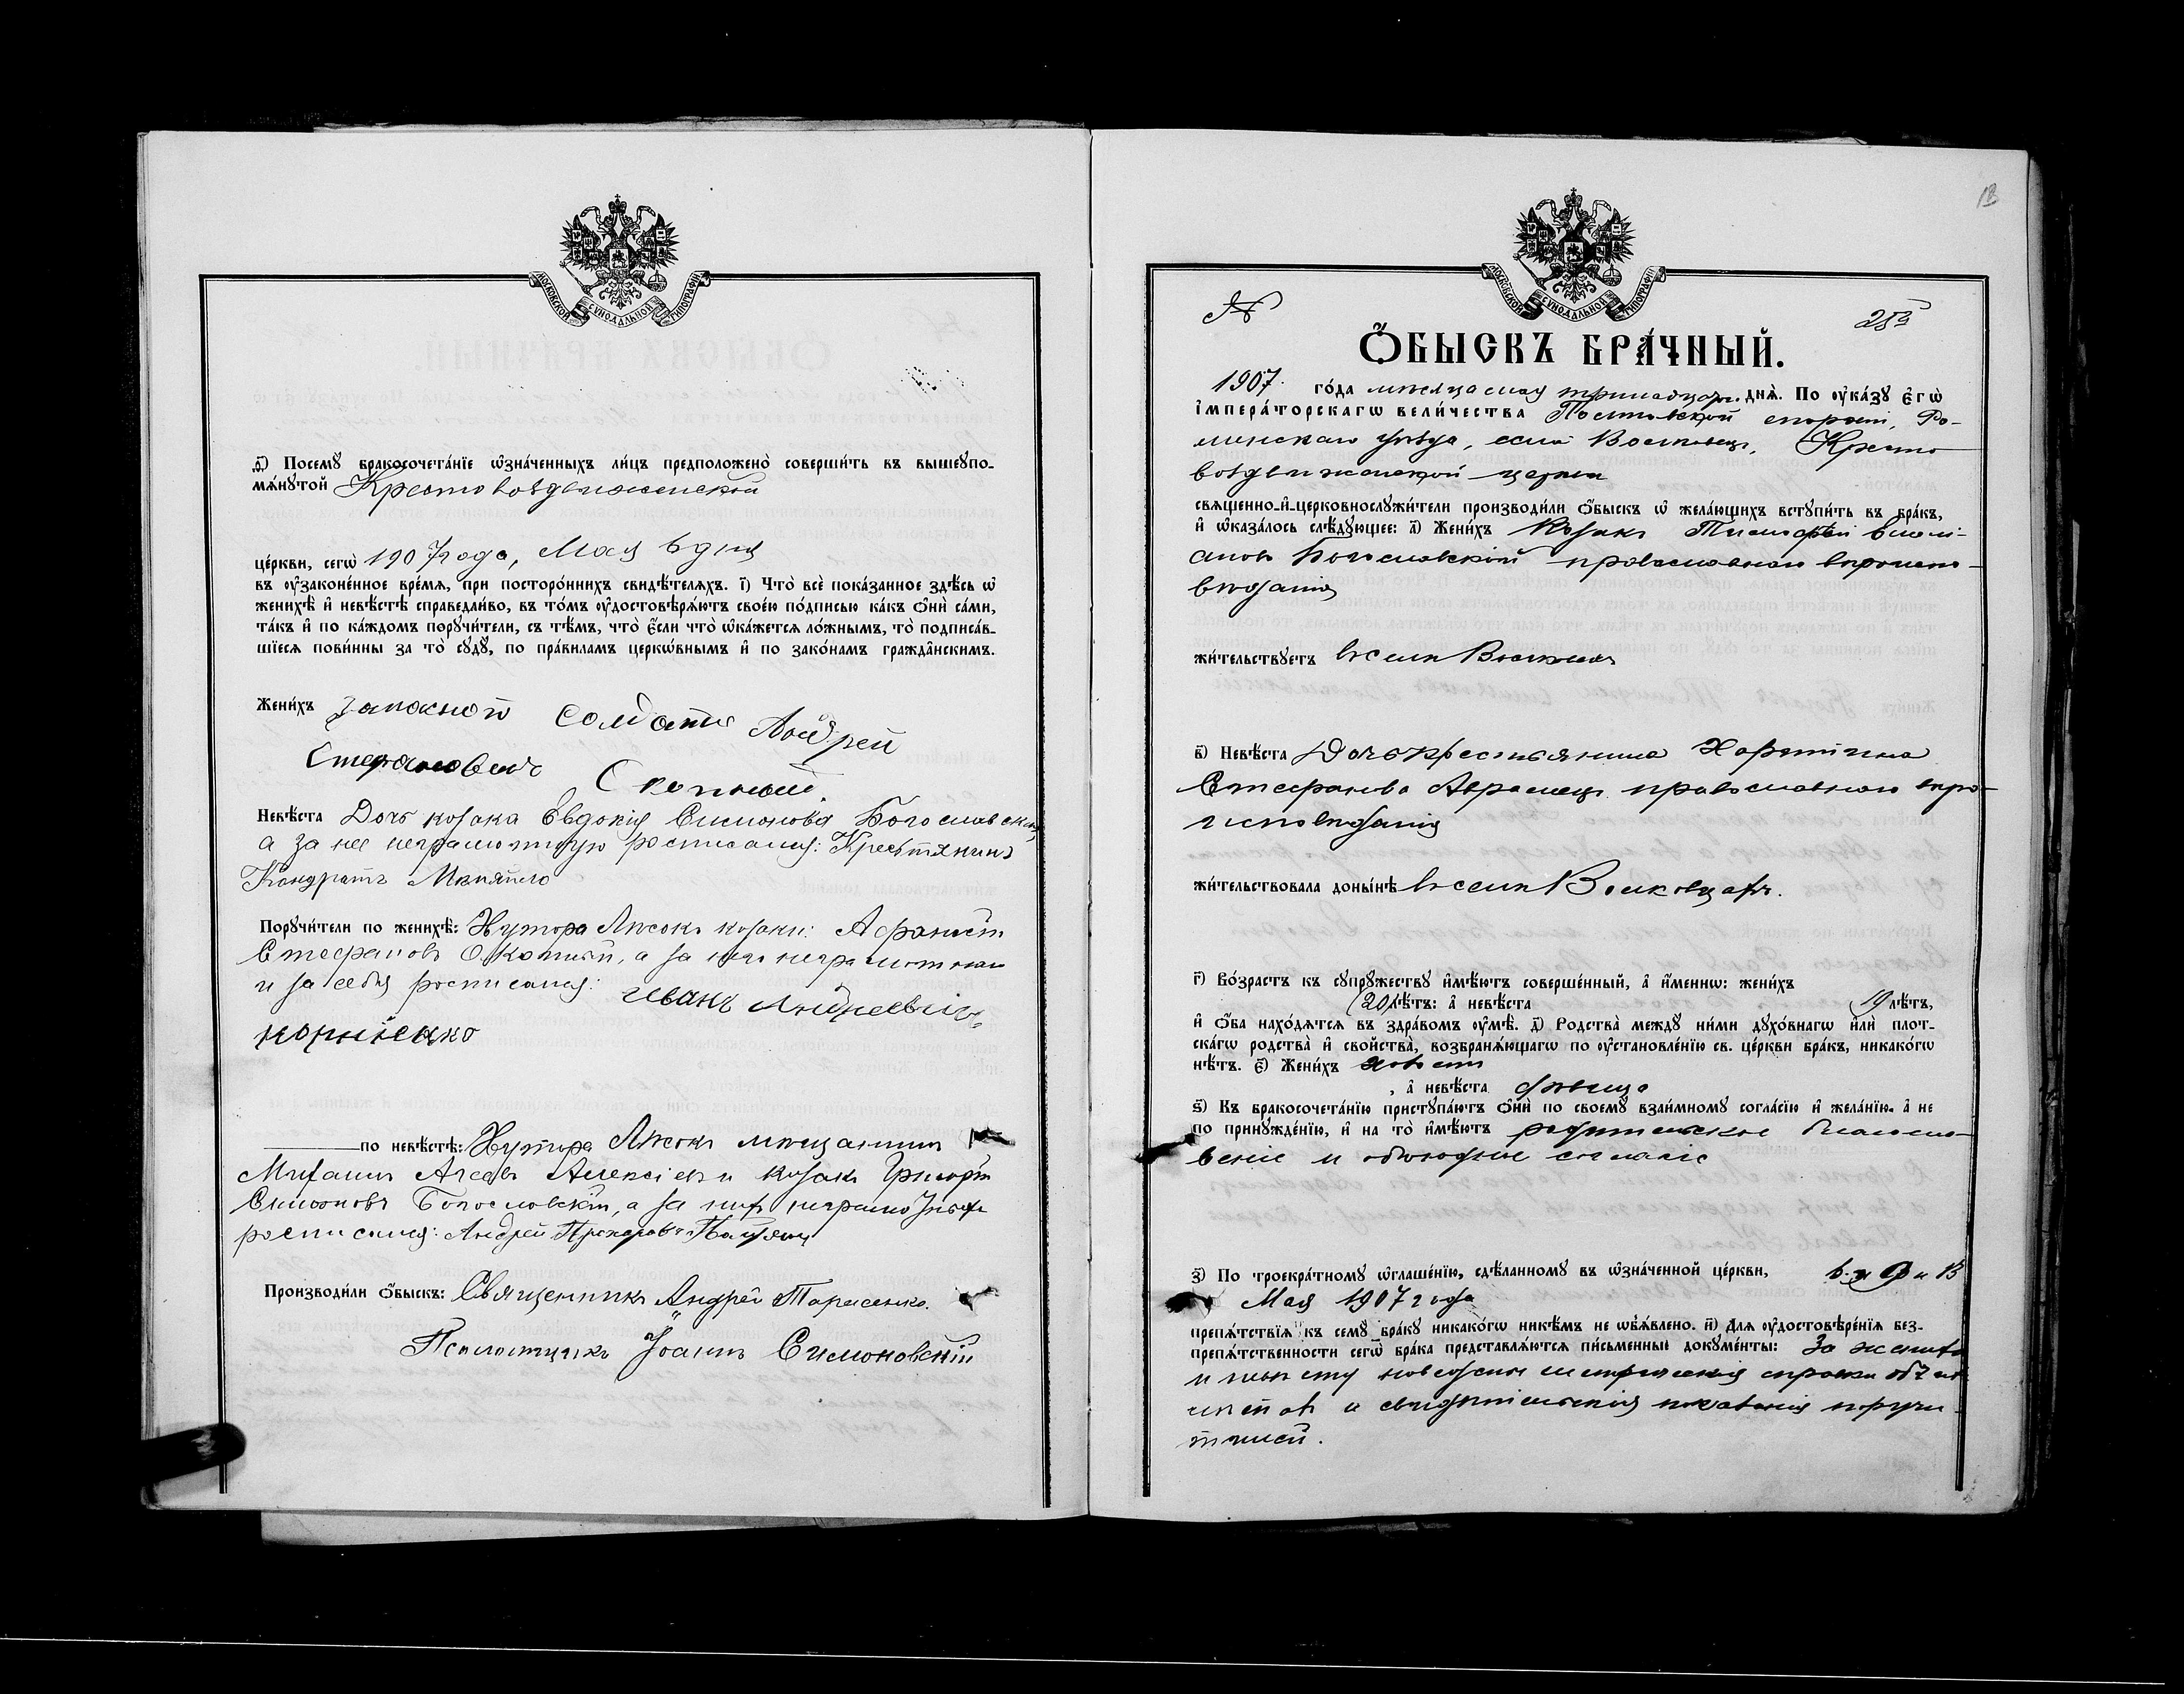 МОСКОВСКОЙ СѴНОДАЛЬНОЙ ТИПОГРАФІИ
д҃) Посемꙋ̀ бракосочета́нїе ѡ҆зна́ченныхъ ли́цъ предположено̀ соверши́ть въ вышеꙋпо-
мѧ́нꙋтой Крестовоздвиженской
це́ркви, сегѡ̀ 1907 года, Мая 6 дня
въ ᲂу҆зако́ненное вре́мѧ, при посторо́ннихъ свидѣ́телѧхъ. і҃) Что̀ всѐ пока́занное здѣ́сь ѡ҆
женихѣ̀ и҆ невѣ́стѣ справедли́во, въ то́мъ ᲂу҆достовѣрѧ́ютъ свое́ю по́дписью ка́къ ѻ҆нѝ са́ми,
та́къ и҆ по ка́ждомъ порꙋчи́тели, съ тѣ́мъ, что̀ є҆́сли что̀ ѡ҆ка́жетсѧ ло́жнымъ, то̀ подписа́в-
шїесѧ пови́нны за то̀ сꙋдꙋ̀, по пра́виламъ церкѡ́внымъ и҆ по зако́намъ гражда̂нскимъ.
Жени́хъ Запасной Солдатъ Андрей
Стефановичъ
Невѣ́ста Дочь козака Евдокія Симонова Богославская,
а за нее неграмотную росписался: Крестянинъ
Кондратъ
Порꙋчи́тели по женихѣ̀: Хутора Лѣсокъ козаки: Афанасій
Стефановъ а за него неграмотнаго
и за себя росписался: Иванъ Андреевичъ
Корніенко
по невѣ́стѣ: Хутора Лѣсокъ мѣщанинъ
Михаилъ Алексіевъ и козакъ Григорій
Симоновъ Богославскій, а за нихъ неграмотныхъ
росписался: Андрей Прохоровъ
Производи́ли ѻ҆́быскъ: Священникъ Андрей Тарасенко.
Псаломщикъ Іоаннъ Симоновскій
МОСКОВСКОЙ СѴНОДАЛЬНОЙ ТИПОГРАФІИ
№ 25й
Ѻ҆́БЫСКЪ БРА́ЧНЫЙ.
1907. го́да мѣсяца мая тринадцатаго днѧ̀. По ᲂу҆ка́зꙋ є҆гѡ̀
і҆мпера́торскагѡ вели́чества Полтавской епархіи, Ро-
менскаго уѣзда, села Волковецъ, Кресто
воздвиженской церкви
свѧще́нно-и҆-церковнослꙋжи́тели производи́ли ѻ҆́быскъ ѡ҆ жела́ющихъ встꙋпи́ть въ бра́къ,
и҆ ѡ҆каза́лось слѣ́дꙋющее: а҃) Жени́хъ Козакъ Тимофей Симо-
ановъ Богославскій православнаго вѣроиспо-
вѣданія
жи́тельствꙋетъ въ селѣ Волковцахъ
в҃) Невѣ́ста Дочь крестьянина Харитина
Стефанова Авраменко православнаго вѣро-
исповѣданія
жи́тельствовала доны́нѣ въ селѣ Волковцахъ.
г҃) Во́зрастъ къ сꙋпрꙋ́жествꙋ и҆мѣ́ютъ соверше́нный, а҆ и҆́меннѡ: жени́хъ
20 лѣ́тъ: а҆ невѣ́ста 19 лѣ́тъ,
и҆ ѻ҆́ба нахо́дѧтсѧ въ здра́вомъ ᲂу҆мѣ̀. д҃) Родства̀ междꙋ̀ ни́ми дꙋхо́внагѡ и҆лѝ плот-
ска́гѡ родства̀ и҆ сво́йства̀, возбранѧ́ющагѡ по ᲂу҆становле́нїю св. це́ркви бра́къ, никако́гѡ
нѣ́тъ. є҃) Жени́хъ холостъ
, а҆ невѣ́ста дѣвица
ѕ҃) Къ бракосочета́нїю пристꙋпа́ютъ ѻ҆нѝ по своемꙋ̀ взаи́мномꙋ согла́сїю и҆ жела́нїю, а҆ не
по принꙋжде́нїю, и҆ на то̀ и҆мѣ́ютъ родительское благосло-
веніе и обоюдное согласіе
з҃) По троекра́тномꙋ ѡ҆глаше́нїю, сдѣ́ланномꙋ въ ѡ҆зна́ченной це́ркви, 6 и 9 и 13
Мая 1907 года
препѧ́тствїѧ къ семꙋ̀ бра́кꙋ никако́гѡ никѣ́мъ не ѡ҆б̾ѧ́влено. и҃) Длѧ̀ ᲂу҆достовѣре́нїѧ без-
препѧ́тственности сегѡ̀ бра́ка представлѧ́ютсѧ пи́сьменные докꙋме́нты: За жениха
и невѣсту метрическія справки
и свидѣтельскія показанія поручи-
телей.